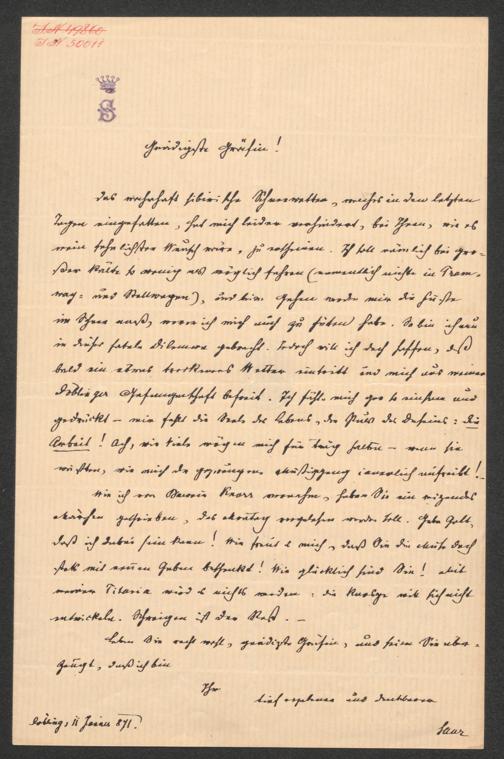 I N 49860
I N 50011
S
Gnädigste Gräfin!
Das wahrhaft sibirische Schneewetter, welches in den letzten
Tagen eingefallen, hat mich leider verhindert, bei Ihnen, wie es
mein sehnlichster Wunsch wäre, zu erscheinen. Ich soll nämlich bei gro-
ßer Kälte so wenig als möglich fahren (namentlich nicht in Tram-
way- und Stellwagen), und beim Gehen werden mir die Füße
im Schnee naß, wovor ich mich auch zu hüten habe. So bin ich nun
in dieses fatale Dilemma gebracht. Jedoch will ich doch hoffen, daß
bald ein etwas trockeneres Wetter eintritt und mich aus meiner
Döblinger Gefangenschaft befreit. Ich fühle mich gar so einsam und
gedrückt – mir fehlt die Seele des Lebens, der Puls des Daseins: die
Arbeit! Ach, wie viele mögen mich für träg halten – wenn sie
wüßten, wie mich der gezwungene Müßiggang innerlich aufreibt! –
Wie ich von Baronin Knorr vernehme, haben Sie ein reizendes
Märchen geschrieben, das Montag vorgelesen werden soll. Gebe Gott,
daß ich dabei sein kann! Wie freut es mich, daß Sie die Muse doch
stets mit neuen Gaben beschenkt! Wie glücklich sind Sie! Mit
meiner wird es nichts werden: die Knospe will sich nicht
entwickeln. Schweigen ist der Rest. –
Leben Sie recht wohl, gnädigste Gräfin, und seien Sie über-
zeugt, daß ich bin
Ihr
tief ergebener und dankbarer
Saar
Döbling, 11 871.